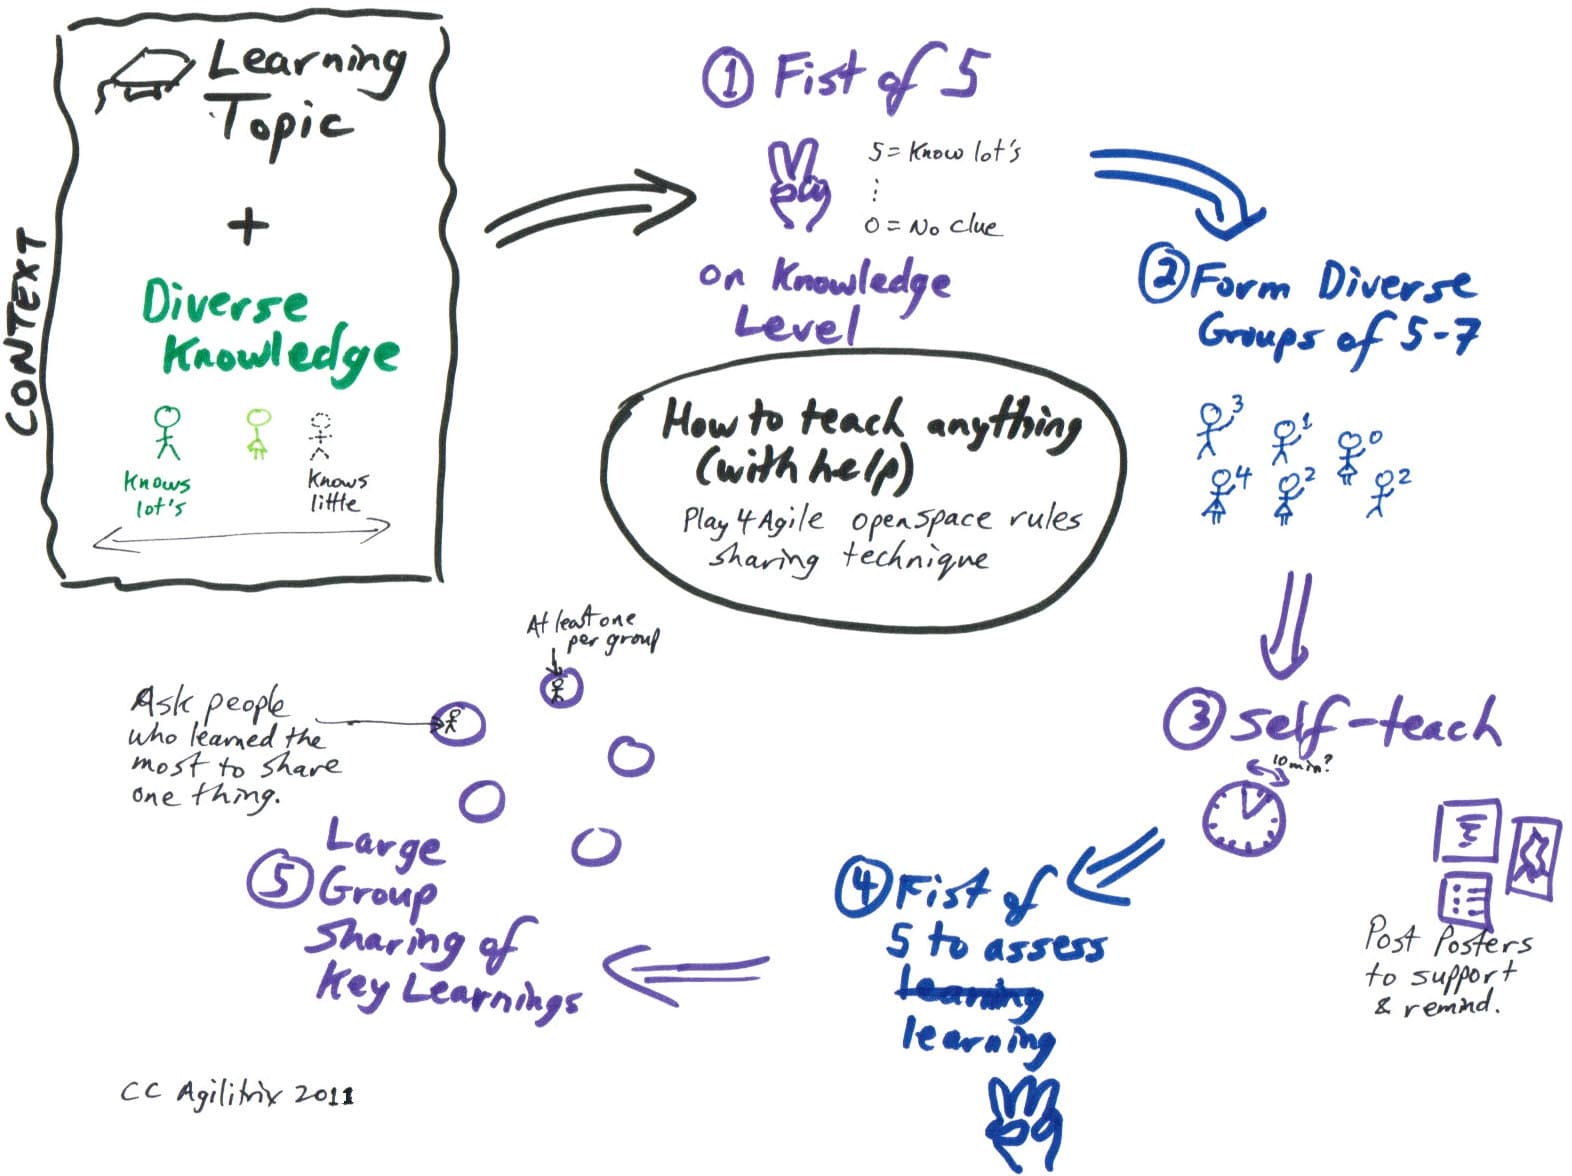 CONTEXT
Learning
Topic
+
Diverse
Knowledge
Knows
lot's
Knows
little
① Fist of 5
5 = Know lot's
⋮
0 = No clue
on Knowledge
Level
② Form Diverse
Groups of 5-7
3
1
0
4
2
2
How to teach anything
(with help)
Play 4 Agile openspace rules
sharing technique
③ Self-teach
10 min?
Post Posters
to support
& remind.
④ Fist of
5 to assess
learning
learning
At least one
per group
Ask people
who learned the
most to share
one thing.
Large
⑤ Group
Sharing of
Key Learnings
CC Agilitrix 2011